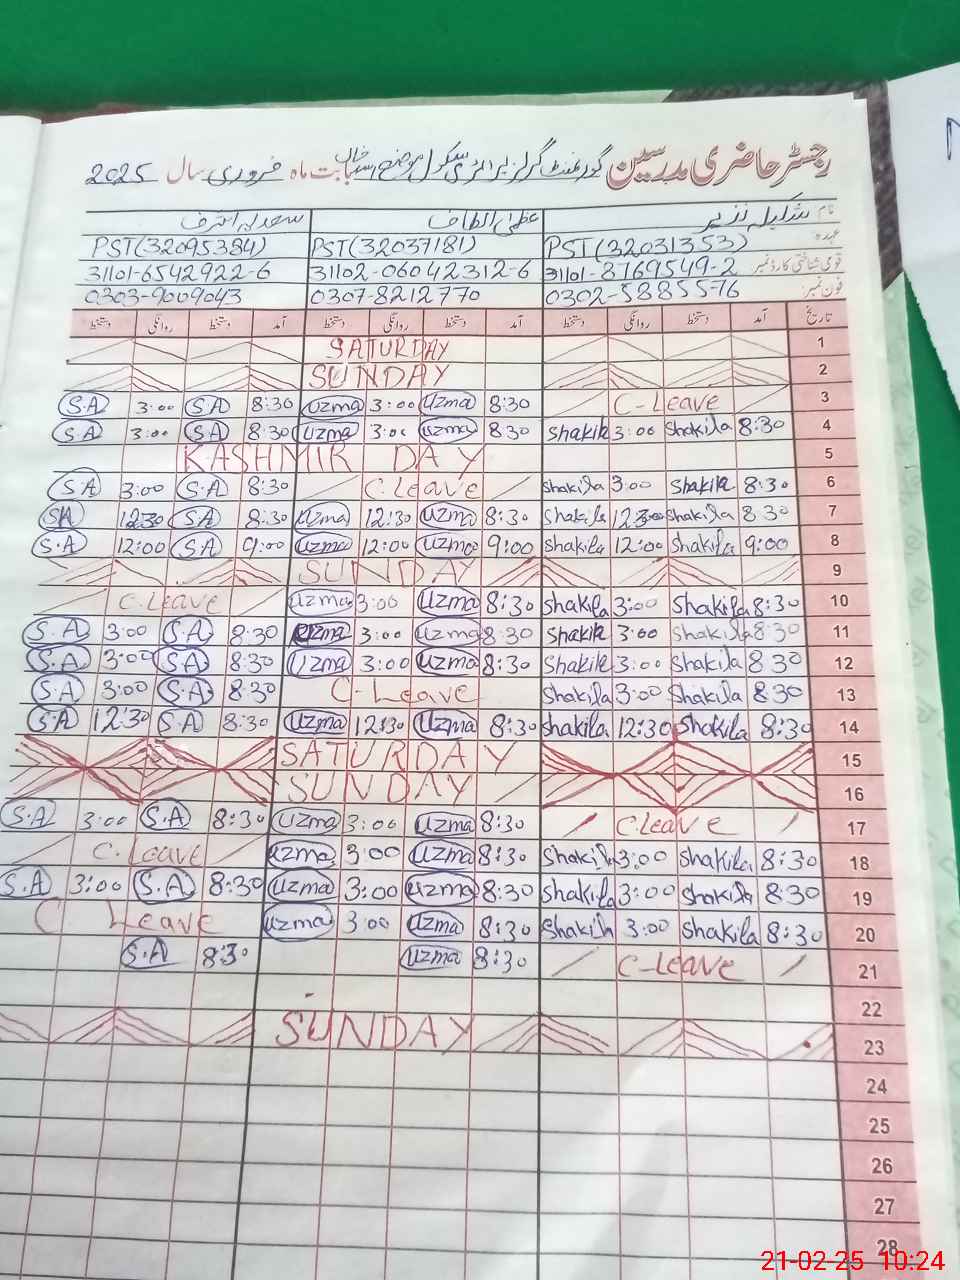 رجسٹر حاضری مدرسین گورنمنٹ گرلز پرائمری سکول موضع بابت ماہ فروری سال 2025
نام شکیلہ نذیر عظمیٰ الطاف سعدیہ اشرف
عہدہ PST(32031353) PST(32037181) PST(32095384)
قومی شناختی کارڈ نمبر 31101-8769549-2 31102-06042312-6 31101-6542922-6
فون نمبر: 0302-5885576 0307-8212770 0303-9009043
تاریخ آمد دستخط روانگی دستخط آمد دستخط روانگی دستخط آمد دستخط روانگی دستخط
SATURDAY 1
SUNDAY 2
S.A 3:00 S.A 8:30 uzma 3:00 uzma 8:30 C-Leave 3
S.A 3:00 S.A 8:30 uzma 3:00 uzma 8 30 shakila 3:00 shakila 8:30 4
KASHMIR DAY 5
S.A 3:00 S.A 8:30 C.Leave shakila 3:00 shakila 8:30 6
SA 12:30 S.A 8:30 uzma 12:30 uzma 8:30 shakila 12:30 shakila 8 30 7
S.A 12:00 S.A 9:00 uzma 12:00 uzma 9:00 shakila 12:00 shakila 9:00 8
SUNDAY 9
C.Leave uzma 3:00 uzma 8:30 shakila 3:00 shakila 8:30 10
S.A 3:00 S.A 8:30 uzma 3:00 uzma 8:30 shakila 3:00 shakila 8:30 11
S.A 3:00 S.A 8:30 uzma 3:00 uzma 8:30 shakila 3:00 shakila 8 30 12
S.A 3:00 S.A 8:30 C-Leave shakila 3:00 shakila 8 30 13
S.A 12:30 S.A 8:30 uzma 12:30 uzma 8:30 shakila 12:30 shakila 8:30 14
SATURDAY 15
SUNDAY 16
S.A 3:00 S.A 8:30 uzma 3:00 uzma 8:30 C.Leave 17
C.Leave uzma 3:00 uzma 8:30 shakila 3:00 shakila 8:30 18
S.A 3:00 S.A 8:30 uzma 3:00 uzma 8:30 shakila 3:00 shakila 8:30 19
C Leave uzma 3:00 uzma 8:30 shakila 3:00 shakila 8:30 20
S.A 8:30 uzma 8:30 C-Leave 21
22
SUNDAY 23
24
25
26
27
28
21-02-25 10:24